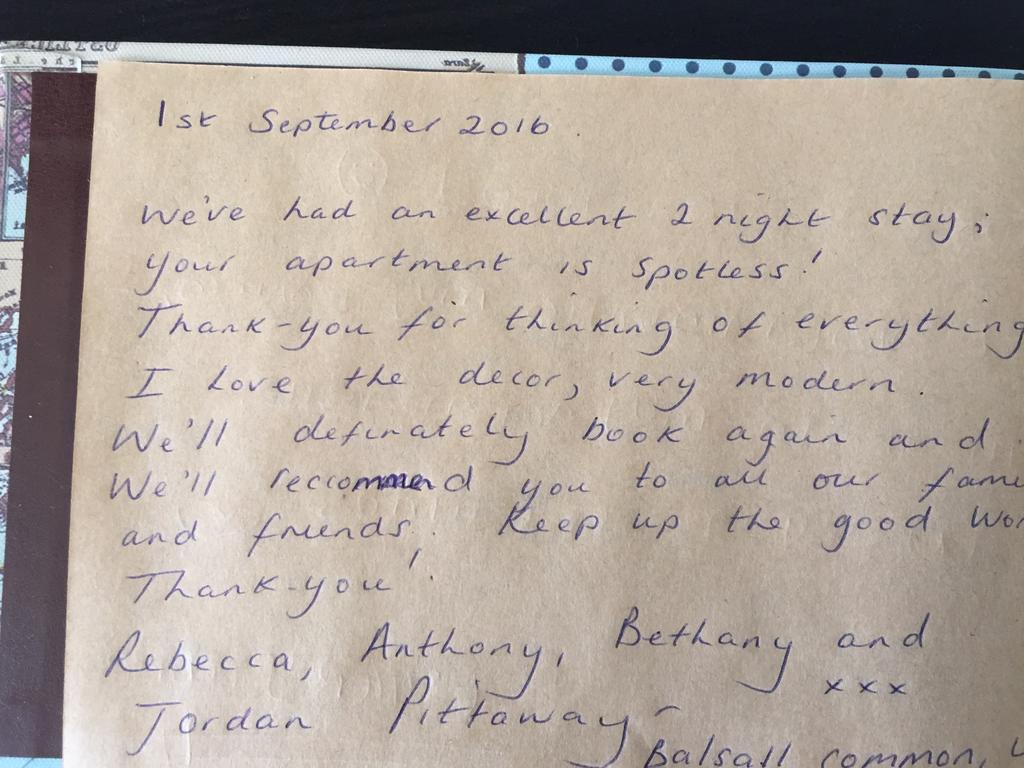 1st September 2016.
We've had an excellent 2 night stay;
your apartment is spotless!
Thank-you for thinking of everything
I love the decor, very modern.
We'll definately book again and
We'll reccommend you to all our
and friends. Keep up the good
Thank-you!
Rebecca, Anthony, Bethany and
xxx
Jordan Pittaway
Balsall common,